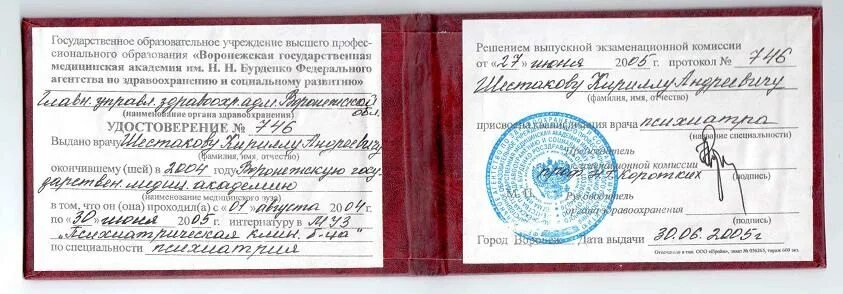 Государственное образовательное учреждение высшего профес-
сионального образования «Воронежская государственная
медицинская академия им. Н. Н. Бурденко Федерального
агентства по здравоохранению и социальному развитию»
Главн. управл. здравоохр. адм. Воронежской обл.
(наименование органа здравоохранения)
УДОСТОВЕРЕНИЕ № 746
Выдано врачу Шестакову Кириллу Андреевичу
(фамилия, имя, отчество)
окончившему (шей) в 2004 году Воронежскую госу-
дарствен. медиц. академию
(наименование медицинского вуза)
в том, что он (она) проходил(а) с «01» августа 2004г.
по «30» июня 2005г. интернатуру в МУЗ
"Психиатрическая клин. б-ца"
по специальности психиатрия
Решением выпускной экзаменационной комиссии
от «27» июня 2005г. протокол № 746
Шестакову Кириллу Андреевичу
(фамилия, имя, отчество)
присвоена квалификация врача психиатра
(название специальности)
Председатель
экзаменационной комиссии
проф. Коротких (подпись)
М. П.
Руководитель
органа здравоохранения
(подпись)
Город Воронеж Дата выдачи 30.06.2005г